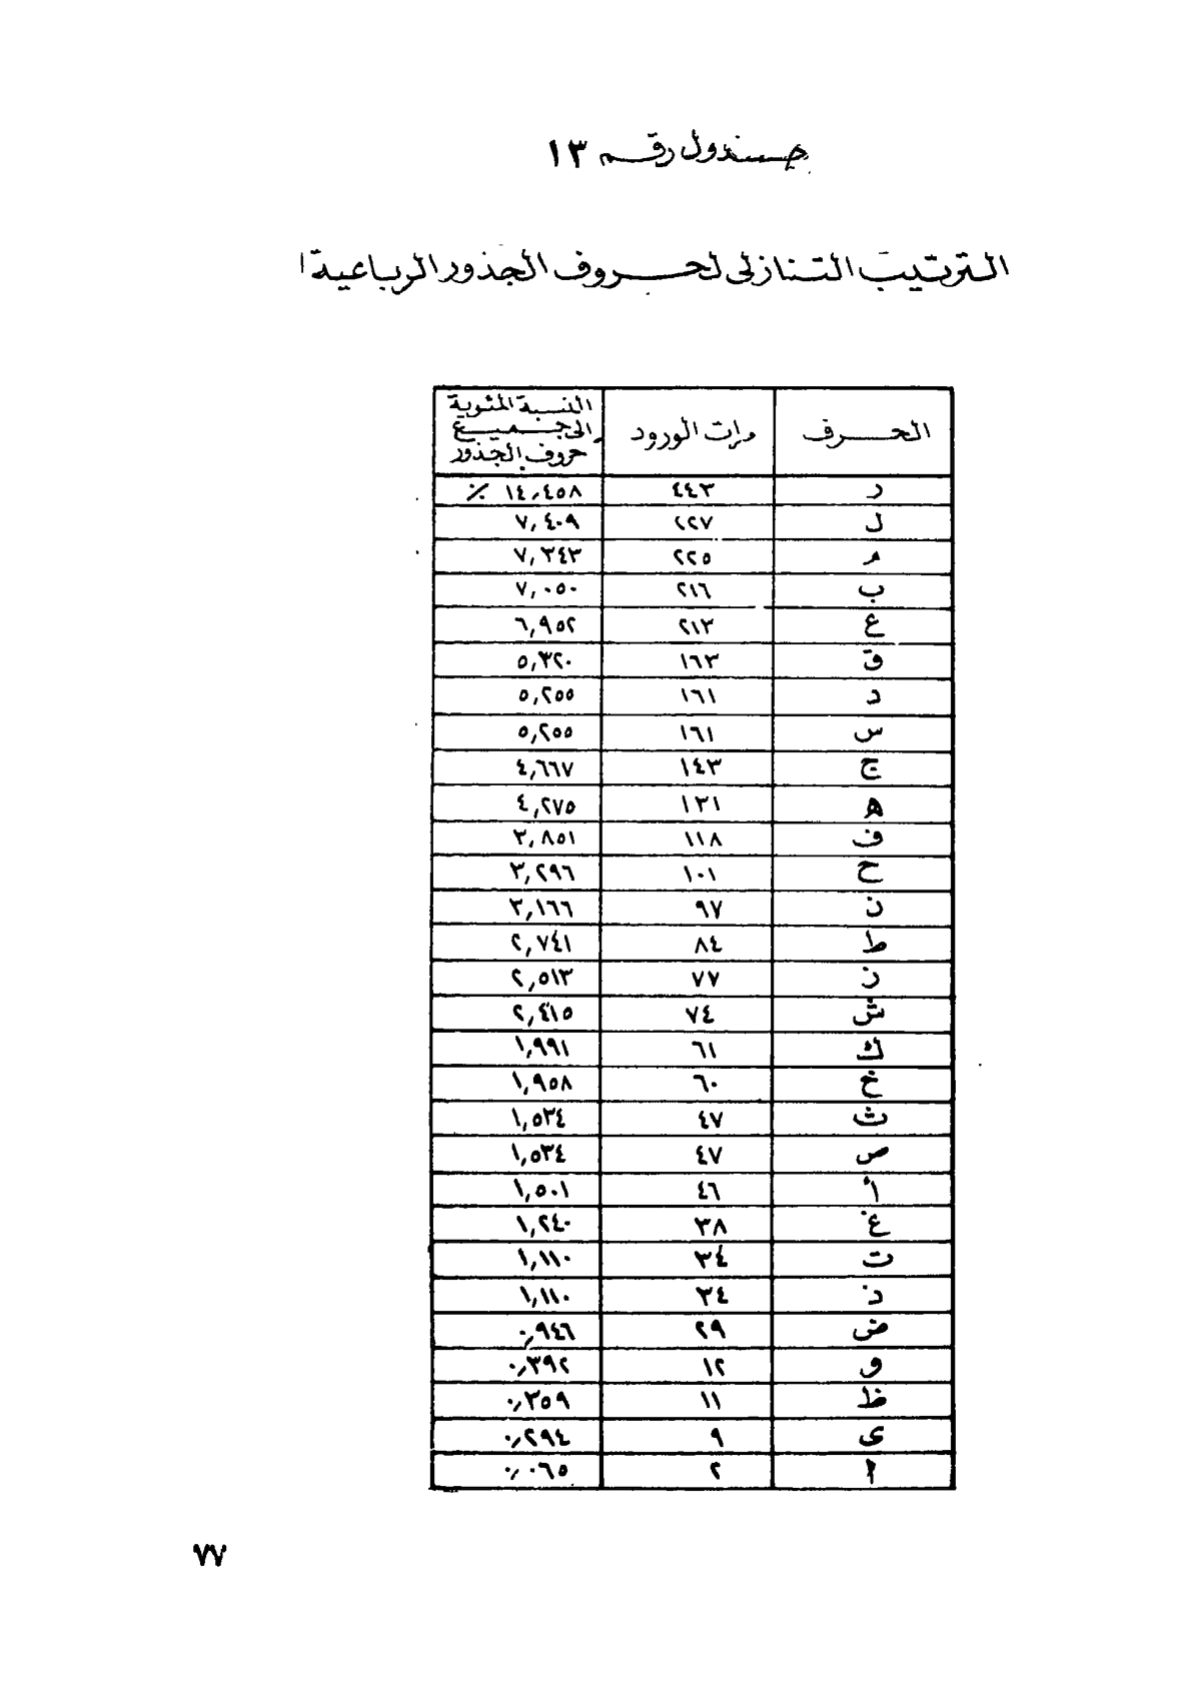 جدول رقم ١٣
الترتيب التنازلى لحروف الجذور الرباعية
الحرف	مرات الورود	النسبة المئوية الى جميع حروف الجذور
ر	٤٤٣	١٤,٤٥٨ ٪
ل	٢٢٧	٧,٤٠٩
م	٢٢٥	٧,٣٤٣
ب	٢١٦	٧,٠٥٠
ع	٢١٣	٦,٩٥٢
ق	١٦٣	٥,٣٢٠
د	١٦١	٥,٢٥٥
س	١٦١	٥,٢٥٥
ج	١٤٣	٤,٦٦٧
ه	١٣١	٤,٢٧٥
ف	١١٨	٣,٨٥١
ح	١٠١	٣,٢٩٦
ن	٩٧	٣,١٦٦
ط	٨٤	٢,٧٤١
ز	٧٧	٢,٥١٣
ش	٧٤	٢,٤١٥
ك	٦١	١,٩٩١
خ	٦٠	١,٩٥٨
ث	٤٧	١,٥٣٤
ص	٤٧	١,٥٣٤
أ	٤٦	١,٥٠١
غ	٣٨	١,٢٤٠
ت	٣٤	١,١١٠
ذ	٣٤	١,١١٠
ض	٢٩	٠,٩٤٦
و	١٢	٠,٣٩٢
ظ	١١	٠,٣٥٩
ى	٩	٠,٢٩٤
ا	٢	٠,٠٦٥
٧٧